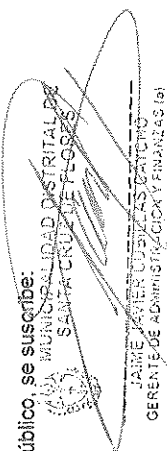 úblico, se suscribe:
MUNICIPALIDAD DISTRITAL DE
SANTA CRUZ DE FLORES
JAIME JAVIER CUBILLAS CAYCHO
GERENTE DE ADMINISTRACION Y FINANZAS (e)